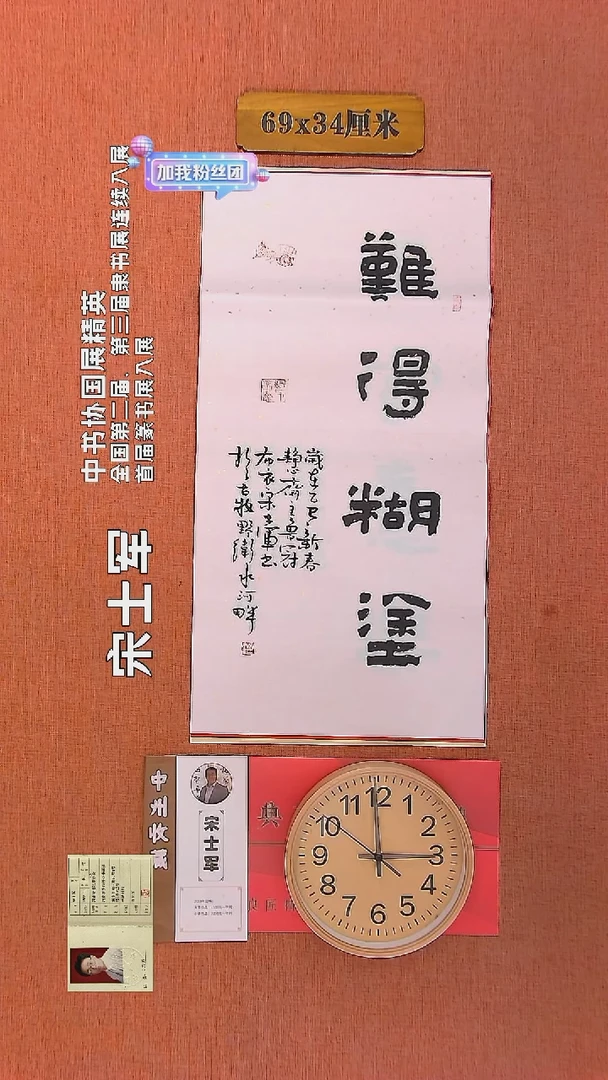 69x34厘米
加我粉丝团
中书协国展精英
全国第二届、第三届隶书展连续入展
首届篆书展入展
宋士军
難得糊塗
歲在乙巳新春
静心齋主魯冠
布衣宋士軍書
於古牧野衛水河畔
宋士军
典
12
1
2
3
4
5
6
7
8
9
10
11